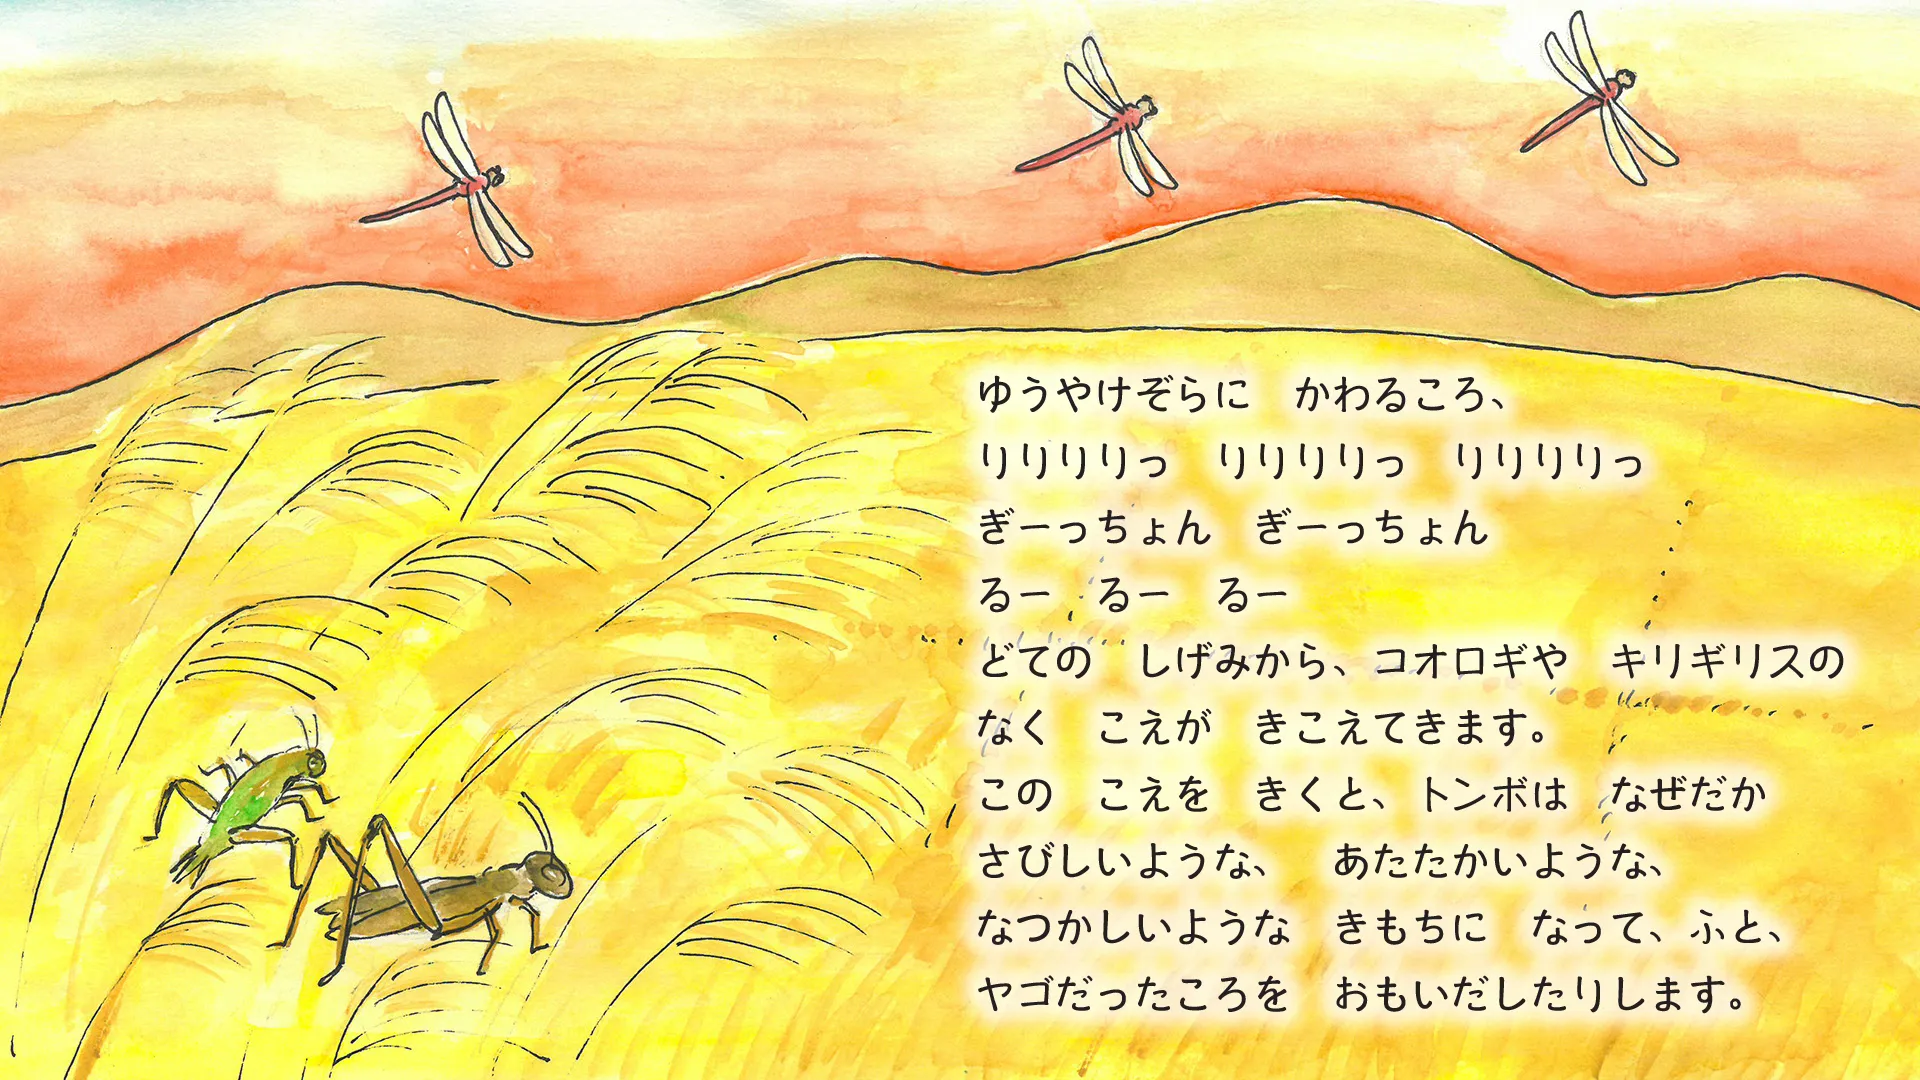 ゆうやけぞらに　かわるころ、
りりりりっ　りりりりっ　りりりりっ
ぎーっちょん　ぎーっちょん
るー　るー　るー
どての　しげみから、コオロギや　キリギリスの
なく　こえが　きこえてきます。
この　こえを　きくと、トンボは　なぜだか
さびしいような、　あたたかいような、
なつかしいような　きもちに　なって、ふと、
ヤゴだったころを　おもいだしたりします。